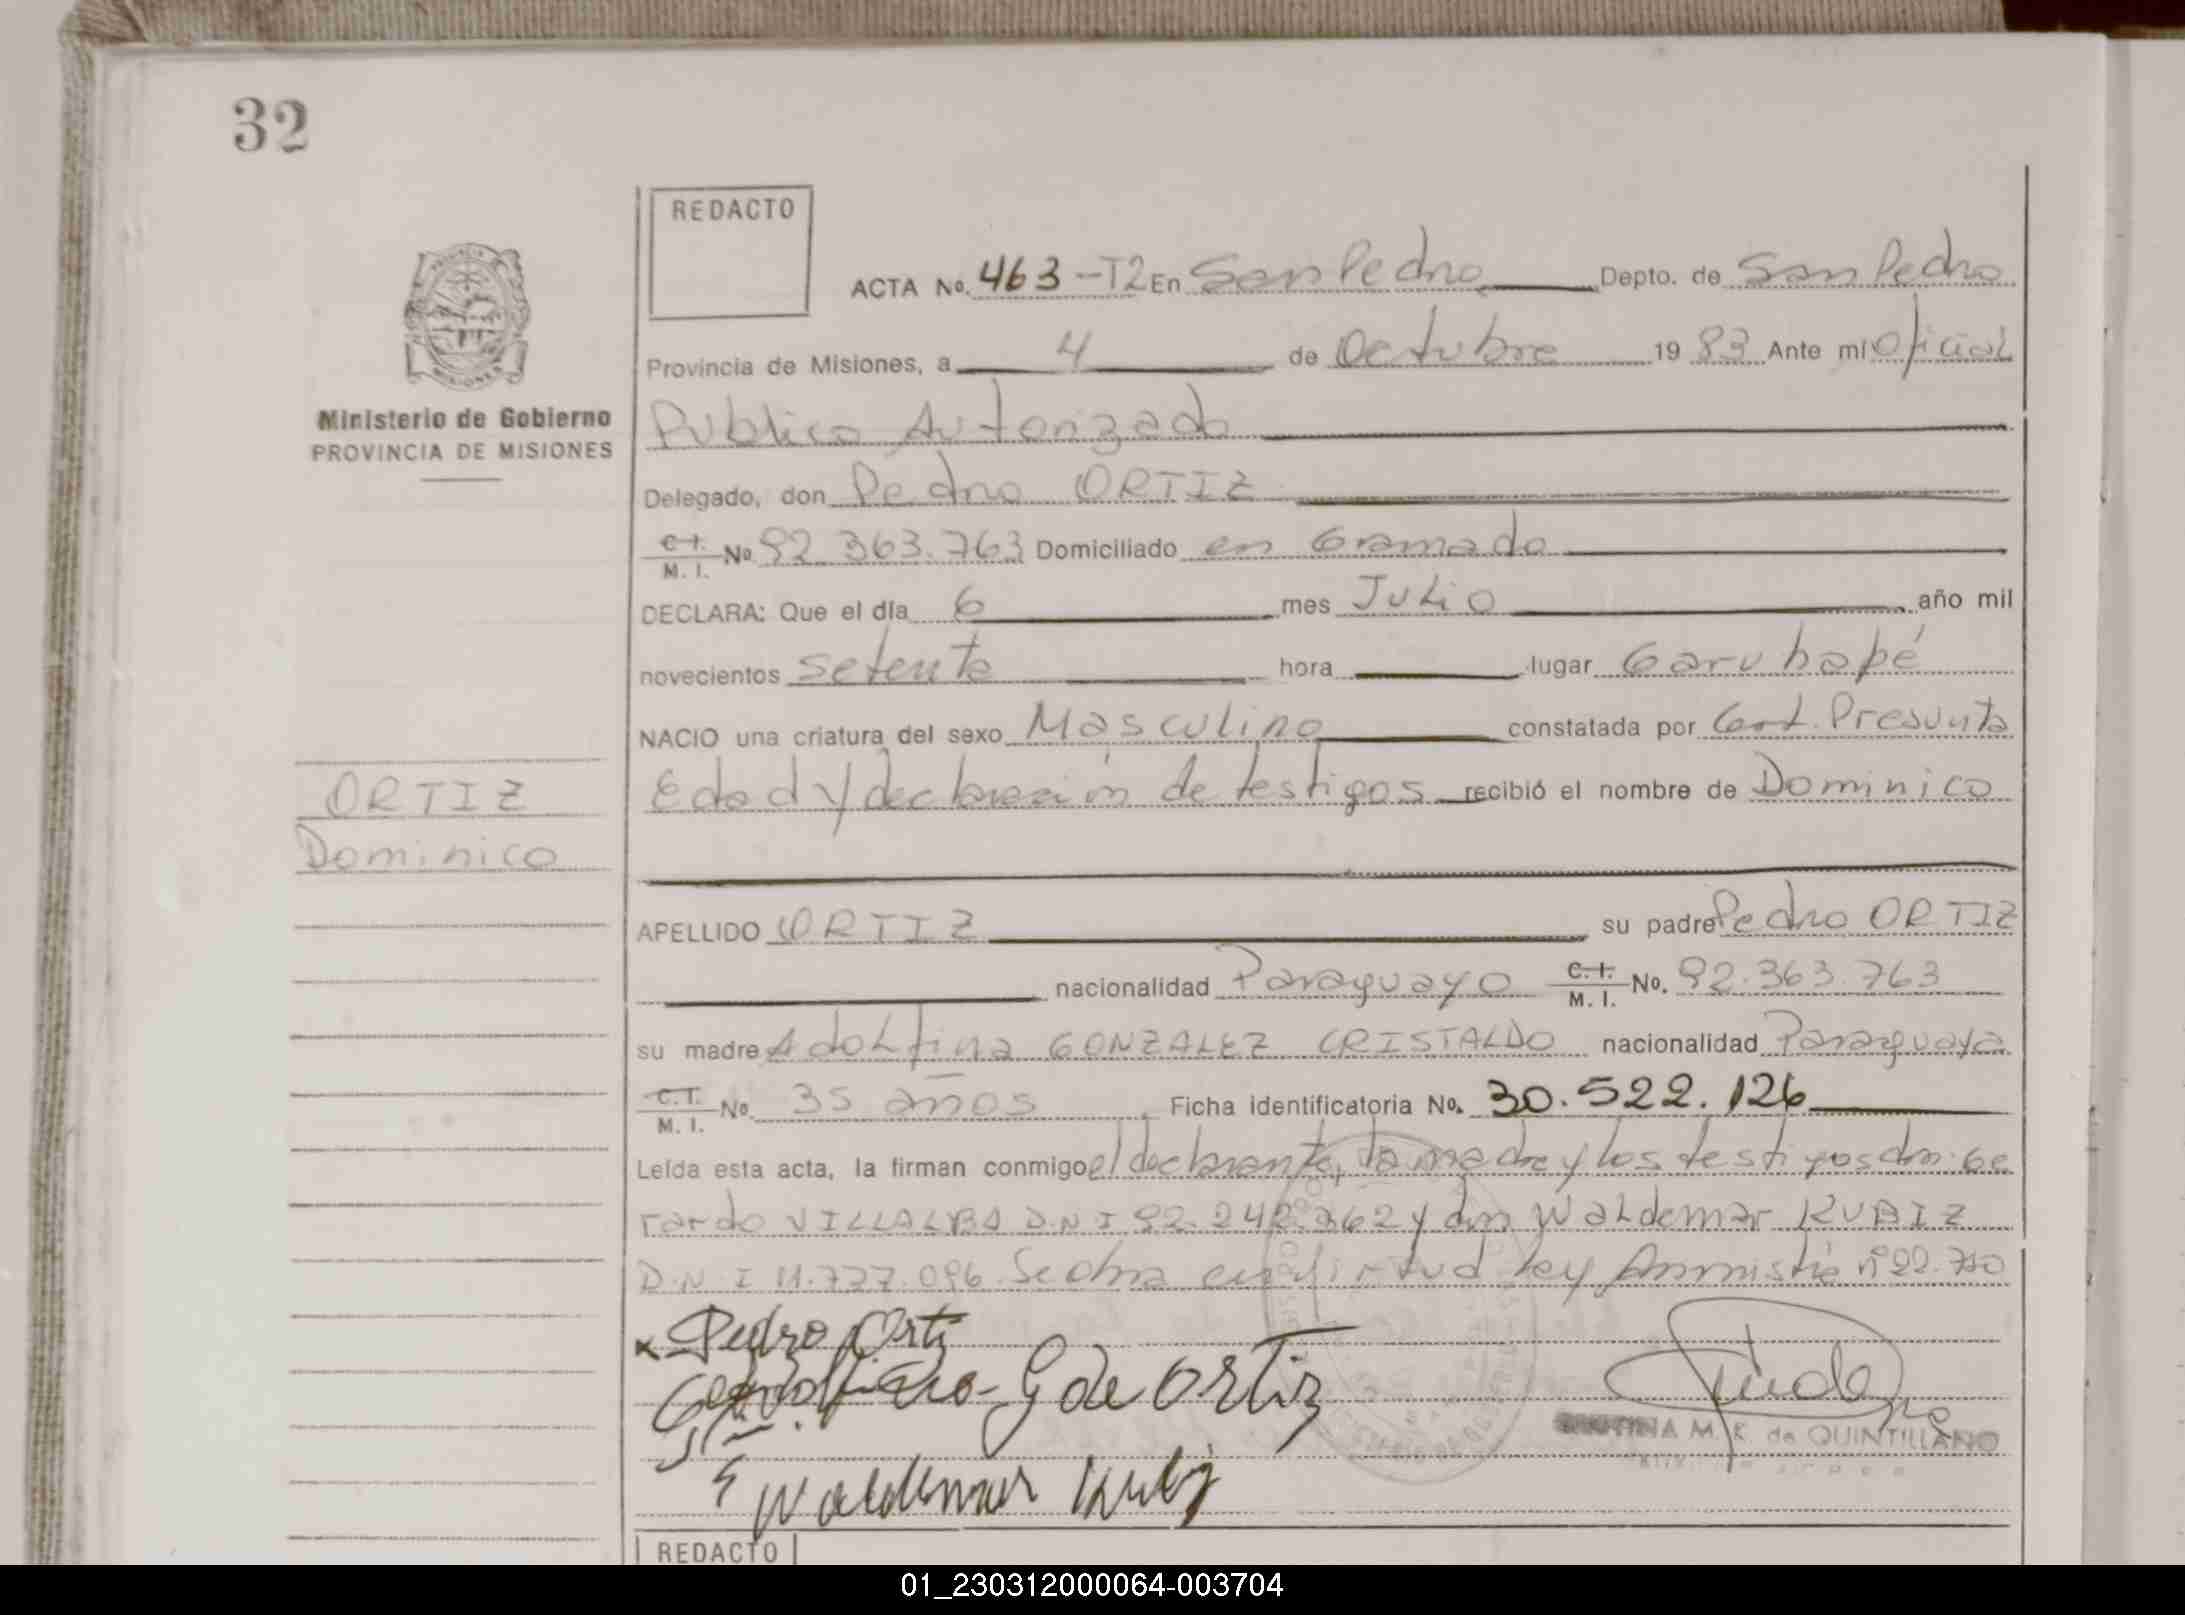 32
REDACTO
ACTA No. 463-T2 En San Pedro Depto. de San Pedro
Provincia de Misiones, a 4 de Octubre 1983 Ante mí Oficial
Ministerio de Gobierno
PROVINCIA DE MISIONES
Publico Autorizado
Delegado, don Pedro ORTIZ
C.I. M.I. No 92.363.763 Domiciliado en Gramado
DECLARA: Que el día 6 mes Julio año mil
novecientos setenta hora lugar Garuhapé
NACIO una criatura del sexo Masculino constatada por Cert. Presunta
Edad y declaración de testigos recibió el nombre de Dominico
ORTIZ
Dominico
APELLIDO ORTIZ su padre Pedro ORTIZ
nacionalidad Paraguayo C.I. M.I. No. 92.363.763
su madre Adolfina GONZALEZ CRISTALDO nacionalidad Paraguaya
C.I. M.I. No. 35 años Ficha identificatoria No. 30.522.126
Leída esta acta, la firman conmigo el declarante, la madre y los testigos don Ge
rardo VILLALBA D.N.I 92.242.262 y don Waldemar KUBIZ
D.N.I 11.727.096. Se obra en virtud ley Amnistia nº 22.710
x Pedro Ortiz
G de Ortiz
Waldemar Kubiz
M. K. de QUINTILLANO
REDACTO
01_230312000064-003704